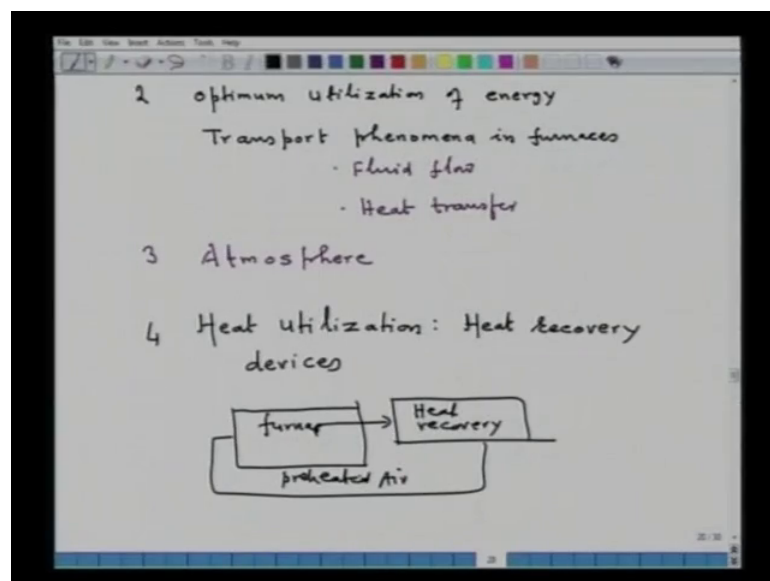 File Edit View Insert Actions Tools Help
2 optimum utilization of energy
Transport phenomena in furnaces
· Fluid flow
· Heat transfer
3 Atmosphere
4 Heat utilization: Heat recovery
devices
Heat
furnace recovery
preheated Air
28